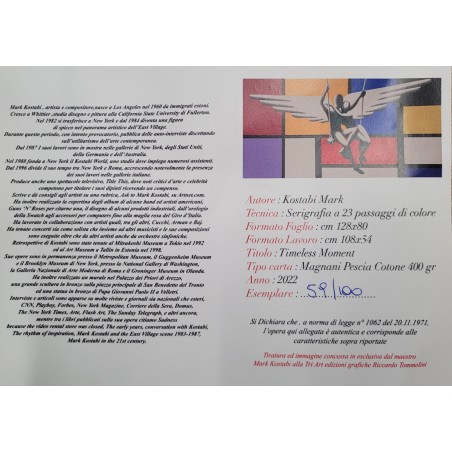 Mark Kostabi , artista e compositore,nasce a Los Angeles nel 1960 da immigrati estoni.
Cresce a Whittier ,studia disegno e pittura alla California State University di Fullerton.
Nel 1982 si trasferisce a New York e dal 1984 diventa una figura
di spicco nel panorama artistico dell'East Village.
Durante questo periodo, con intento provocatorio, pubblica delle auto-interviste discettando
sull'utilitarismo dell'arte contemporanea.
Dal 1987 i suoi lavori sono in mostra nelle gallerie di New York, degli Stati Uniti,
della Germania e dell'Australia.
Nel 1988 fonda a New York il Kostabi World, uno studio dove impiega numerosi assistenti.
Dal 1996 divide il suo tempo tra New York e Roma, accrescendo notevolmente la presenza
dei suoi lavori nelle gallerie italiane.
Produce anche uno spettacolo televisivo, Title This, dove noti critici d'arte e celebrità
competono per titolare i suoi dipinti ricevendo un compenso.
Scrive ed è referente per una rubrica artistica, Ask to Mark Kostabi, su Artnet.com.
Ha inoltre realizzato la copertina degli album di alcune band ed artisti americani,
Guns 'N' Roses per citarne una, il disegno di alcuni prodotti industriali, dall'orologio
della Swatch agli accessori per computers fino alla maglia rosa del Giro d'Italia.
Ha lavorato in collaborazione con artisti quali, tra gli altri, Cucchi, Arman e Baj.
Ha tenuto concerti sia come solista che insieme ad altri musicisti e le sue composizioni
sono eseguite oltre che da altri artisti anche da orchestre sinfoniche.
Retrospettive di Kostabi sono state tenute al Mitsukoshi Museum a Tokio nel 1992
ed al Art Museum a Tallin in Estonia nel 1998.
Sue opere sono in permanenza presso il Metropolitan Museum, il Guggenheim Museum
e il Brooklyn Museum di New York, la National Gallery di Washington,
la Galleria Nazionale di Arte Moderna di Roma e il Groninger Museum in Olanda.
Ha inoltre realizzato un murale nel Palazzo dei Priori di Arezzo,
una grande scultura in bronzo sulla piazza principale di San Benedetto del Tronto
ed una statua in bronzo di Papa Giovanni Paolo II a Velletri.
Interviste e articoli sono apparse su molte riviste e giornali sia nazionali che esteri,
CNN, Playboy, Forbes, New York Magazine, Corriere della Sera, Domus,
The New York Times, Arte, Flash Art, The Sunday Telegraph, e altri ancora,
mentre tra i libri pubblicati sulla sua opera citiamo Sadness
because the video rental store was closed, The early years, conversation with Kostabi,
The rhythm of inspiration, Mark Kostabi and the East Village scene 1983-1987,
Mark Kostabi in the 21st century.
Autore : Kostabi Mark
Tecnica : Serigrafia a 23 passaggi di colore
Formato Foglio : cm 128x80
Formato Lavoro : cm 108x54
Titolo : Timeless Moment
Tipo carta : Magnani Pescia Cotone 400 gr
Anno : 2022
Esemplare : 59/100
Si Dichiara che , a norma di legge n° 1062 del 20.11.1971,
l'opera qui allegata è autentica e corrisponde alle
caratteristiche sopra riportate
Tiratura ed immagine concessa in esclusiva dal maestro
Mark Kostabi alla Tri Art edizioni grafiche Riccardo Tommolini